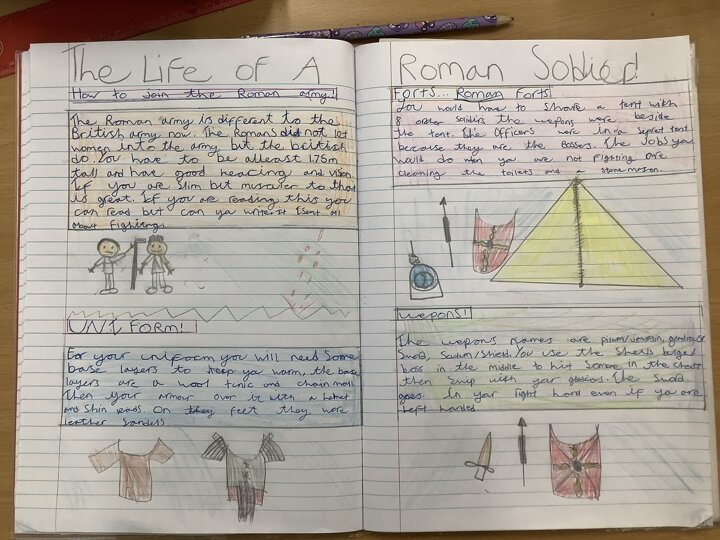 The Life of A
How to join the Roman army!
The Roman army is different to the
British army now. The Romans did not let
women into the army but the british
do. You have to be alleast 1.75m
tall and have good heacing and vison.
If you are slim but muscaler to that
is great. If you are reading this you
can read but can ya write it Isnt all
about Fighting.
UNI FORM!
For your uniform you will need some
base layers to keep ya warm, the base
layers are a wool tunic and chain mail
Then your armour over it with a helmet
and Shin pads. On they feet they wore
leather Sandels
Roman Soldier!
Forts... Roman Forts
You would have to Share a tent with
8 other soldirs the wepons were beside
the tent. The Officers were in a seprat tent
because they are the Bosses. The Jobs you
would do wen you are not Fighting are
cleaning the toilets and a
Wepons!
The wepons names are pilum/Javelin, gladius/
Swold, Scutum/Shield. You use the Sheilds
boss in the middle to hit Someone in the chest
then with your gladious. The Swold
goes In your right hand even if you are
left handed